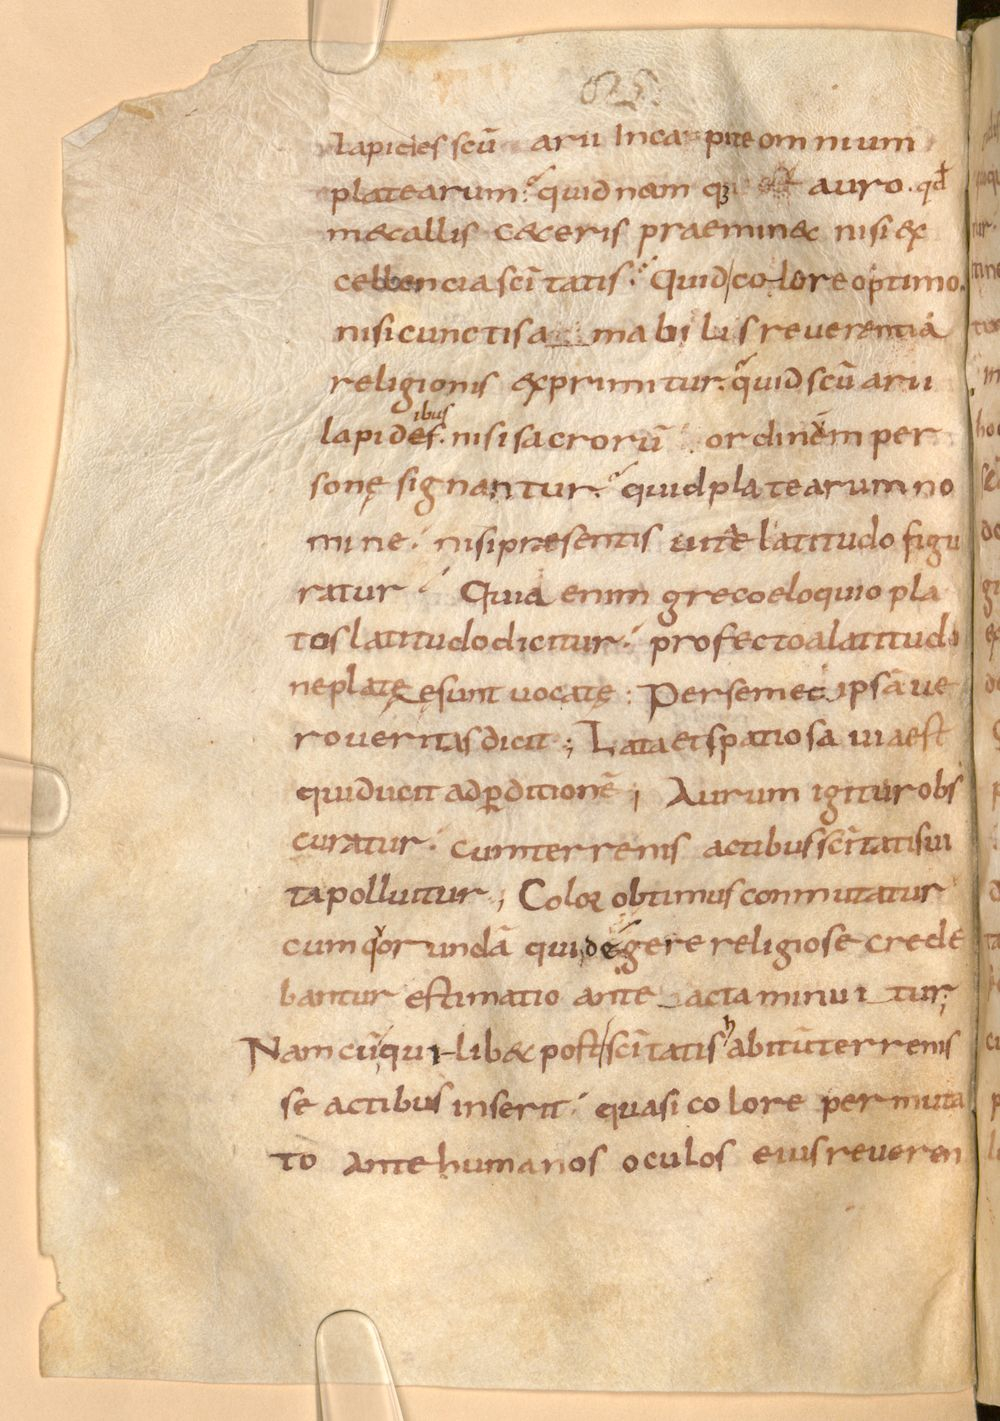 lapides scu̅arii In capite omnium
platearum. quid nam q; est auro. qd̅
metallis ceteris praeminet nisi ex
cellencia sci̅tatis. Quid colore optimo.
nisi cunctis amabilis reuerentia
religionis exprimitur. quid scu̅arii
lapidef. ibus nisi sacroru̅ ordinem per
sonę signantur. quid platearum no
mine. nisi presentis uite latitudo figu
ratur Quia enim greco eloquio pla
tos latitudo dicitur. profecto a latitudi
ne platęę sunt uocatę : Per semet ipsa̅ ue
ro ueritas dicit ; Lata et spatiosa uia est
qui ducit ad p̲ditione̅ ; Aurum igitur obs
curatur. cum terrenis actibus sci̅tatis ui
ta polluitur ; Color obtimus conmutatur
cum quorunda̅ qui degere religiose crede
bantur estimatio ante acta minuitur ;
Nam cu̅ qui libet post sci̅tatis habitu̅ terrenis
se actibus inserit. quasi colore permuta
to ante humanos oculos eius reueren